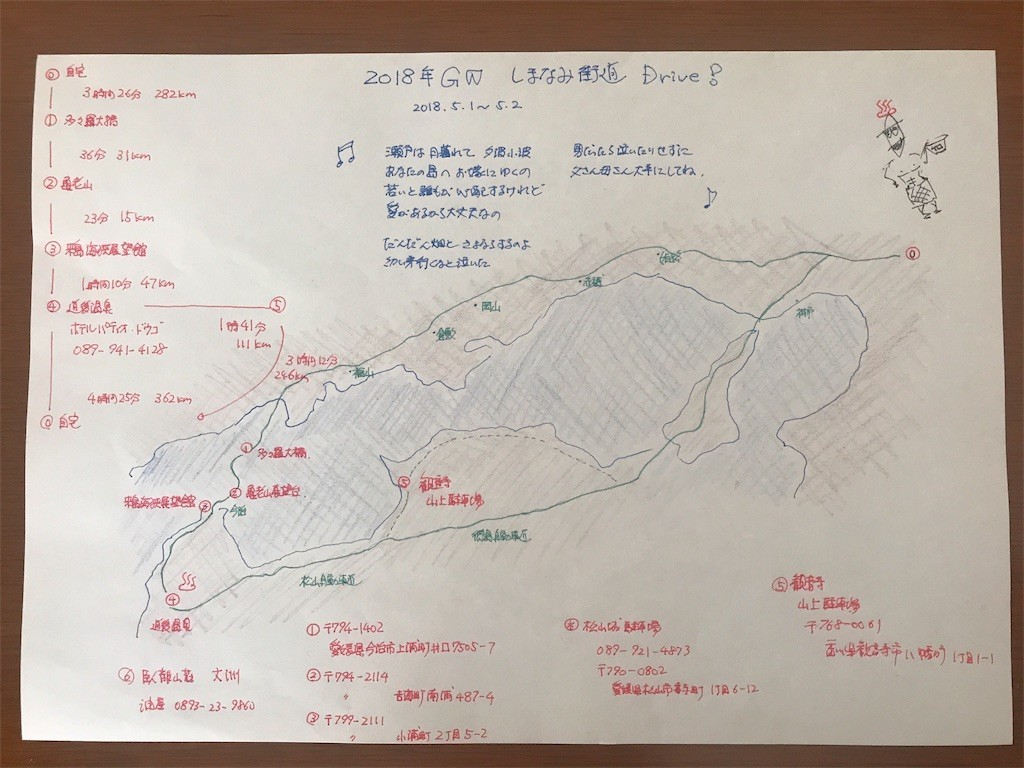 2018年GW しまなみ街道 Drive!
2018.5.1〜5.2
瀬戸は日暮れて 夕波小波
あなたの島へ お嫁にゆくの
若いと誰もが 心配するけれど
愛があるから大丈夫なの
だんだん畑と さよならするのよ
幼い弟 行くなと泣いた
男だったら 泣いたりせずに
父さん母さん大事にしてね。
⓪ 自宅
3時間26分 282km
① 多々羅大橋
36分 31km
② 亀老山
23分 15km
③ 来島海峡展望館
1時間10分 47km
④ 道後温泉
ホテルパティオ・ドウゴ
089-941-4128
⑤
1時間41分
111km
3時間12分
246km
4時間25分 362km
⓪ 自宅
⓪
姫路
赤穂
岡山
倉敷
福山
神戸
① 多々羅大橋
② 亀老山展望台
来島海峡展望館 ③
今治
⑤ 観音寺
山上駐車場
徳島自動車道
松山自動車道
④
道後温泉
⑥ 臥龍山荘 大洲
油屋 0893-23-9860
① 〒794-1402
愛媛県今治市上浦町井口7505-7
② 〒794-2114
〃 吉海町南浦487-4
③ 〒799-2111
〃 小浦町2丁目5-2
④ 松山城 駐車場
089-921-4873
〒790-0802
愛媛県松山市喜与町1丁目6-12
⑤ 観音寺
山上駐車場
〒768-0061
香川県観音寺市八幡町1丁目1-1